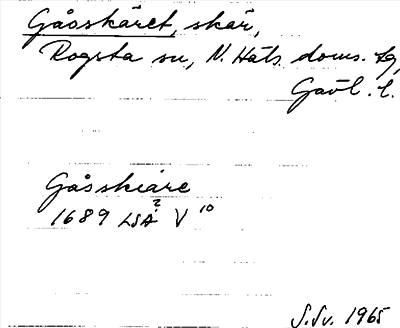 Gåsskäret, skär,
Rogsta sn, N. Häls. doms. tg,
Gävl. l.
Gåsskiäre
1689 LSA? V 10
S.Sv. 1965